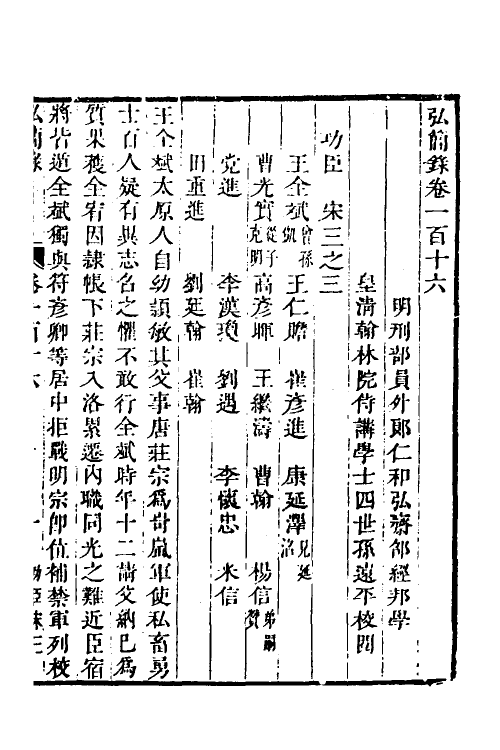 弘簡錄卷一百十六
明刑部員外郎仁和弘齋邵經邦學
皇淸翰林院侍講學士四世孫遠平校閱
功臣 宋三之三
王全斌曾孫凱 王仁贍 崔彦進 康延澤兄延沼
曹光實從子克明 高彦暉 王繼濤 曹翰 楊信弟嗣贊
党進 李漢瓊 劉遇 李懷忠 米信
田重進 劉廷翰 崔翰
王全斌太原人自幼頴敏其父事唐莊宗爲岢嵐軍使私畜勇
士百人疑有異志名之懼不敢行全斌時年十二請父納已爲
質果獲全宥因隷帳下莊宗入洛累遷內職同光之難近臣宿
將皆遁全斌獨與符彦卿等居中拒戰明宗卽位補禁軍列校
弘簡錄 卷一百十六 一 功臣宋三